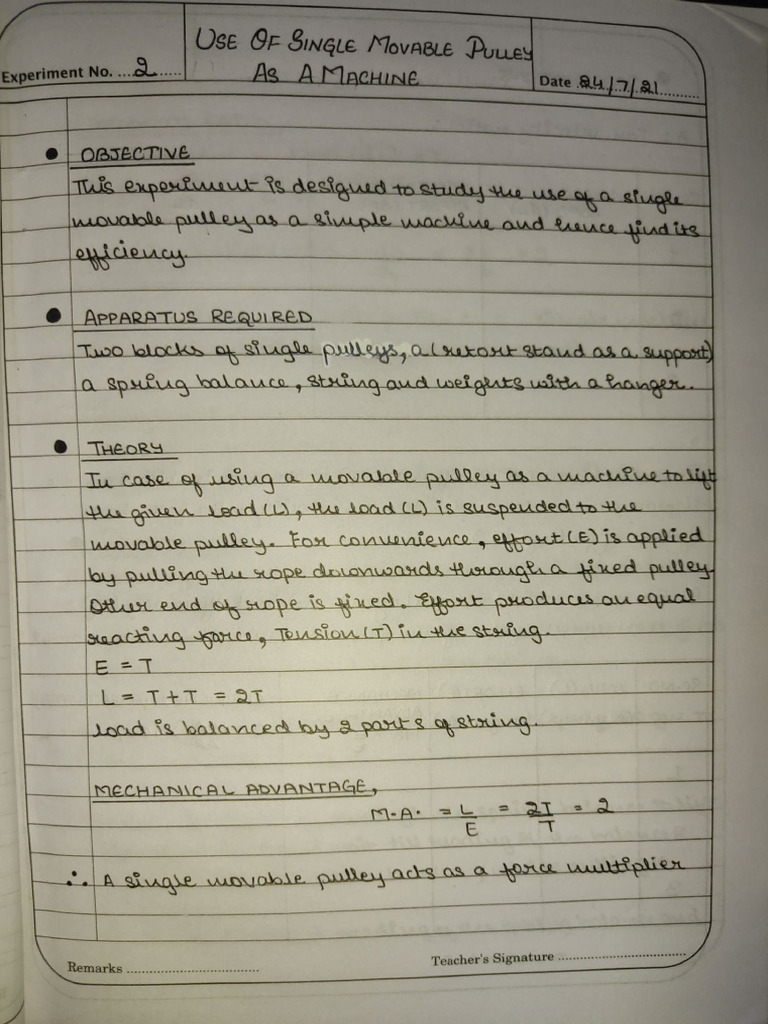 USE OF SINGLE MOVABLE PULLEY
AS A MACHINE
Experiment No. ...2......
Date .24./.7./.21..........
• OBJECTIVE
This experiment is designed to study the use of a single
movable pulley as a simple machine and hence find its
efficiency.
• APPARATUS REQUIRED
Two blocks of single pulleys, a (retort stand as a support)
a spring balance, string and weights with a hanger.
• THEORY
In case of using a movable pulley as a machine to lift
the given load (L), the load (L) is suspended to the
movable pulley. For convenience, effort (E) is applied
by pulling the rope downwards through a fixed pulley.
Other end of rope is fixed. Effort produces an equal
reacting force, Tension (T) in the string.
E = T
L = T + T = 2T
Load is balanced by 2 parts of string.
MECHANICAL ADVANTAGE,
M.A. = L/E = 2T/T = 2
∴ A single movable pulley acts as a force multiplier
Remarks ......................................
Teacher's Signature ......................................